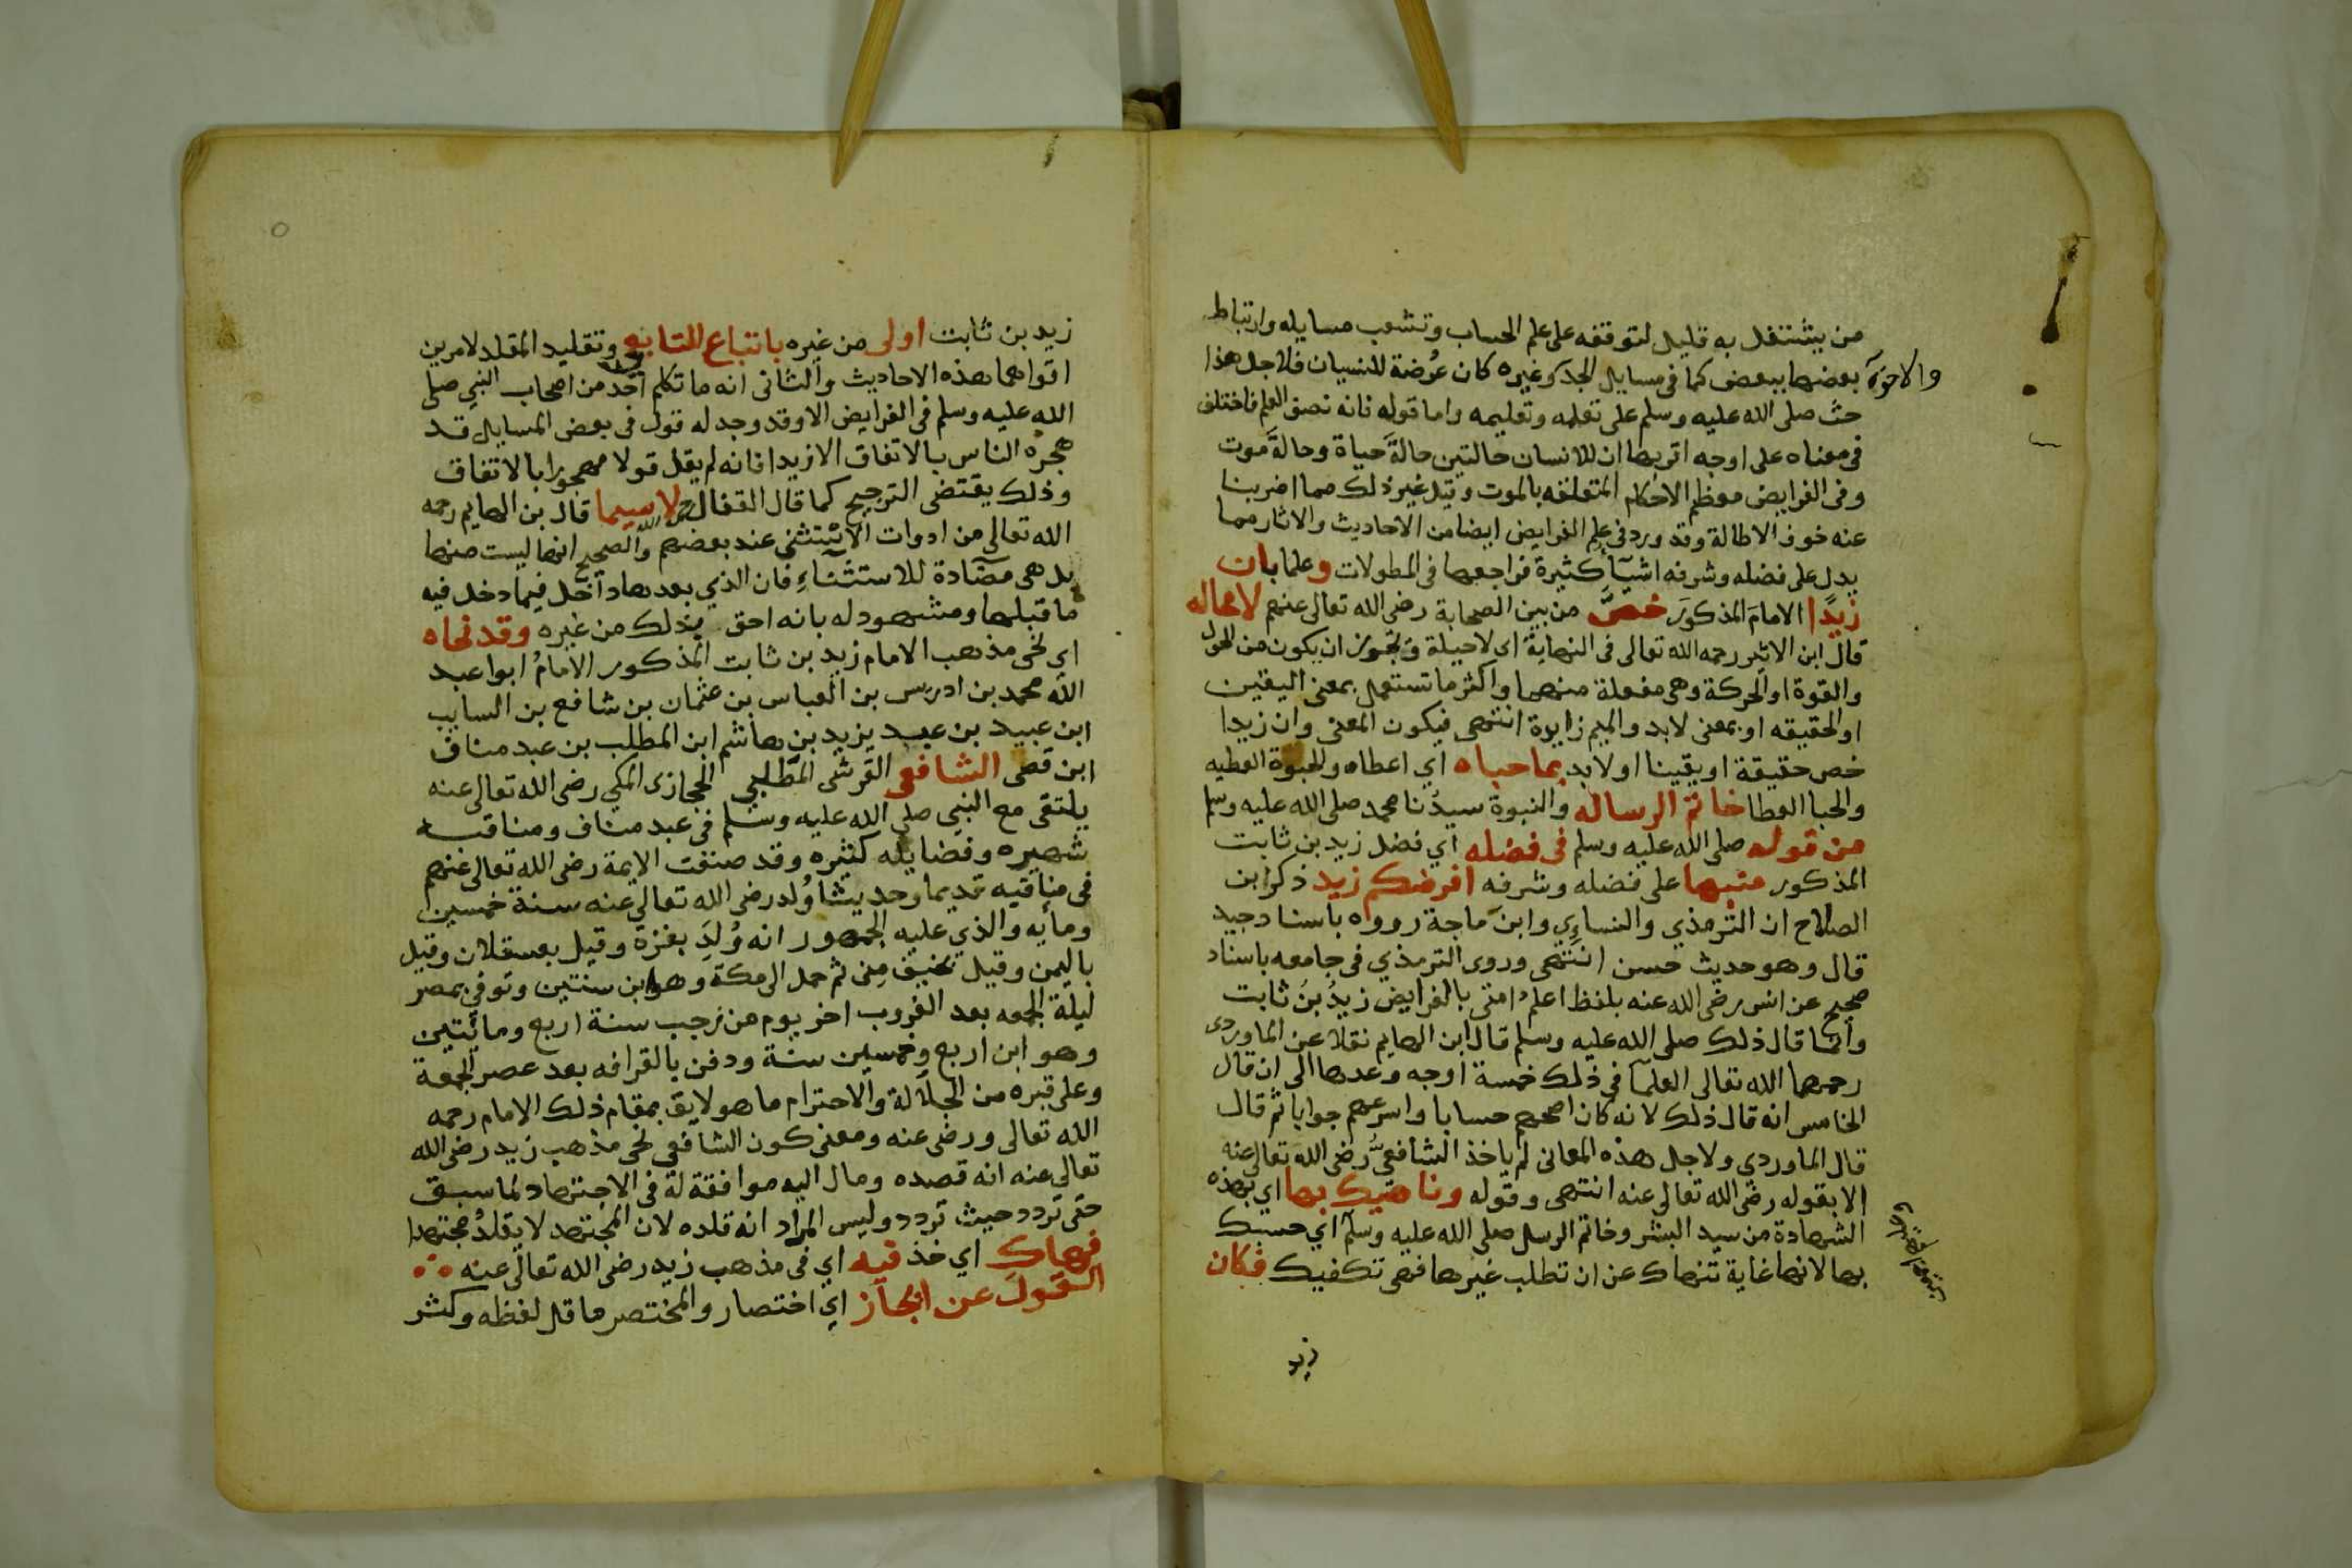 من يشتغل به قليل لتوقفه على علم الحساب وتشعب مسايله وارتباط
بعضها ببعض كما فى مسايل الجد وغيره كان عُرضة للنسيان فلاجل هذا
والاخوة
حث صلى الله عليه وسلم على تعلمه وتعليمه واما قوله فانه نصف العلم فاختلف
فى معناه على اوجه اقربها ان للانسان حالتين حالةَ حياة وحالةَ موت
وفى الفرايض معظم الاحكام المتعلقه بالموت وقيل غير ذلك مما اضربنا
عنه خوف الاطالة وقد ورد فى علم الفرايض ايضا من الاحاديث والاثار مما
يدل على فضله وشرفه اشيآء كثيرة فراجعها فى المطولات وعلما بان
زيدًا الامامَ المذكورَ خصَّ من بين الصحابة رضى الله تعالى عنهم لامحاله
قال ابن الاثير رحمه الله تعالى فى النهاية اى لاحيلة ويجوز ان يكون من الحول
والقوة او الحركة وهى مفعلة منهما واكثر ما تستعمل بمعنى اليقين
او الحقيقه او بمعنى لابد والميم زايدة انتهى فيكون المعنى وان زيدا
خص حقيقة او يقينا او لابد بما حباه اي اعطاه والحبوة العطيه
والحبا العطا خاتم الرساله والنبوة سيدُنا محمد صلى الله عليه وسلم
من قوله صلى الله عليه وسلم فى فضله اي فضل زيد بن ثابت
المذكور منبها على فضله وشرفه افرضكم زيد ذكر ابن
الصلاح ان الترمذي والنساءي وابن ماجة رووه باسناد جيد
قال وهو حديث حسن انتهى وروى الترمذي فى جامعه باسناد
صحيح عن انس رضى الله عنه بلفظ اعلم امتى بالفرايض زيدُ بنُ ثابت
وانما قال ذلك صلى الله عليه وسلم قال ابن الهايم نقلا عن الماوردى
رحمهما الله تعالى العلمآ فى ذلك خمسة اوجه وعدها الى ان قال
الخامس انه قال ذلك لانه كان اصحهم حسابا واسرعهم جوابا ثم قال
قال الماوردي ولاجل هذه المعانى لم ياخذ الشافعىُّ رضى الله تعالى عنه
الا بقوله رضى الله تعالى عنه انتهى وقوله وناهيك بها اي بهذه
الشهادة من سيد البشر وخاتم الرسل صلى الله عليه وسلم اي حسبك
بها لانها غاية تنهاك عن ان تطلب غيرها فهى تكفيك فكان
زيد
زيد بن ثابت اولى من غيره باتباع التابع وتقليد المقلد لامرين
اقواهما هذه الاحاديث والثانى انه ما تكلم احد من اصحاب النبى صلى
الله عليه وسلم فى الفرايض الا وقد وجد له قول فى بعض المسايل قد
هجره الناس بالاتفاق الا زيدا فانه لم يقل قولا مهجورا بالاتفاق
وذلك يقتضى الترجيح كما قال القفال لاسيما قال بن الهايم رحمه
الله تعالى من ادوات الاستثنى عند بعضهم والصحيح انها ليست منها
بل هى مضآدة للاستثنآء فان الذي بعدها داخل فيما دخل فيه
ما قبلها ومشهود له بانه احق بذلك من غيره وقد نحاه
اي نحى مذهب الامام زيد بن ثابت المذكور الامامُ ابوا عبد
الله محمد بن ادريس بن العباس بن عثمان بن شافع بن السايب
ابن عبيد بن عبد يزيد بن هاشم ابن المطلب بن عبد مناف
ابن قصى الشافعى القرشى المطلبى الحجازى المكى رضى الله تعالى عنه
يلتقى مع النبى صلى الله عليه وسلم فى عبد مناف ومناقبه
شهيره وفضايله كثيره وقد صنفت الايمة رضى الله تعالى عنهم
فى مناقبه قديما وحديثا وُلد رضى الله تعالى عنه سنة خمسين
ومايه والذي عليه الجمهور انه وُلِدَ بغزة وقيل بعسقلان وقيل
باليمن وقيل بخيف مِنى ثم حمل الى مكة وهو ابن سنتين وتوفي بمصر
ليلة الجمعه بعد الغروب اخر يوم من رجب سنة اربع ومائيتين
وهو ابن اربع وخمسين سنة ودفن بالقرافه بعد عصر الجمعة
وعلى قبره من الجلالة والاحترام ما هو لايق بمقام ذلك الامام رحمه
الله تعالى ورضى عنه ومعنى كون الشافعى نحى مذهب زيد رضى الله
تعالى عنه انه قصده ومال اليه موافقة له فى الاجتهاد لما سبق
حتى تردد حيث تردد وليس المراد انه قلده لان المجتهد لا يقلدُ مجتهدا
فهاك اي خذ فيه اي فى مذهب زيد رضى الله تعالى عنه
القول عن ايجاز اي اختصار والمختصر ما قل لفظه وكثر